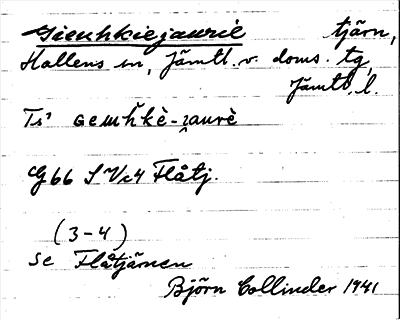 Gieuhkiejaurie tjärn,
Hallens sn, Jämtl. v. doms. tg,
Jämtl. l.
G 66 S Vc4 Flåtj.
(3-4)
se Flåtjärnen
Björn Collinder 1941